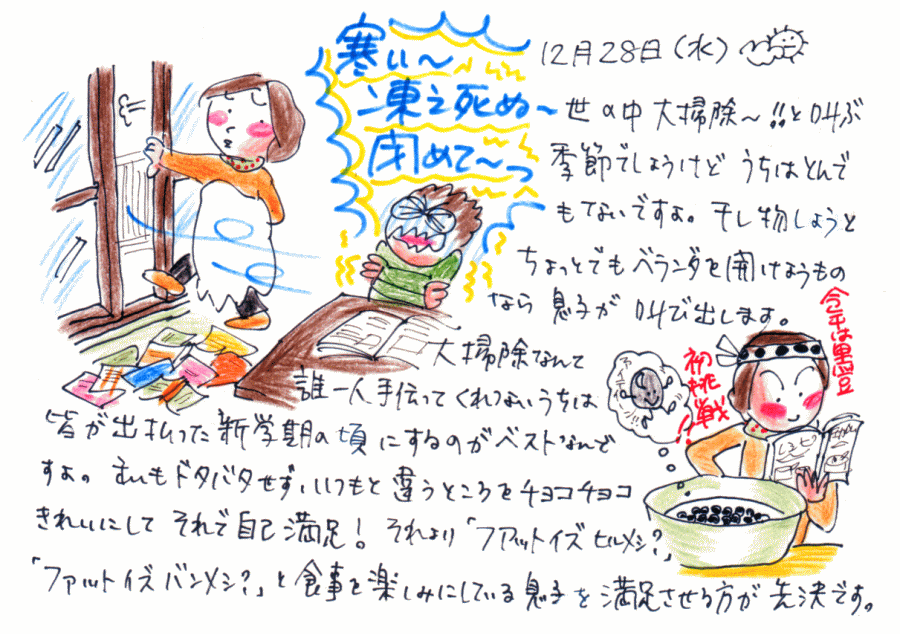 12月28日(水)
寒い〜
凍え死ぬ〜
閉めて〜っ
世の中 大掃除〜!!と叫ぶ
季節でしょうけど うちはとんで
もないですよ。干し物しようと
ちょっとでもベランダを開けようもの
なら 息子が 叫び出します。
大掃除なんて
誰一人手伝ってくれないうちは
皆が出払った新学期の頃にするのがベストなんで
すよ。ドタバタせず、いつもと違うところをチョコチョコ
きれいにして それで自己満足! それより「ファットイズ ヒルメシ?」
「ファットイズバンメシ?」と食事を楽しみにしている息子を満足させる方が先決です。
今年は黒豆
初挑戦!!
レシピ